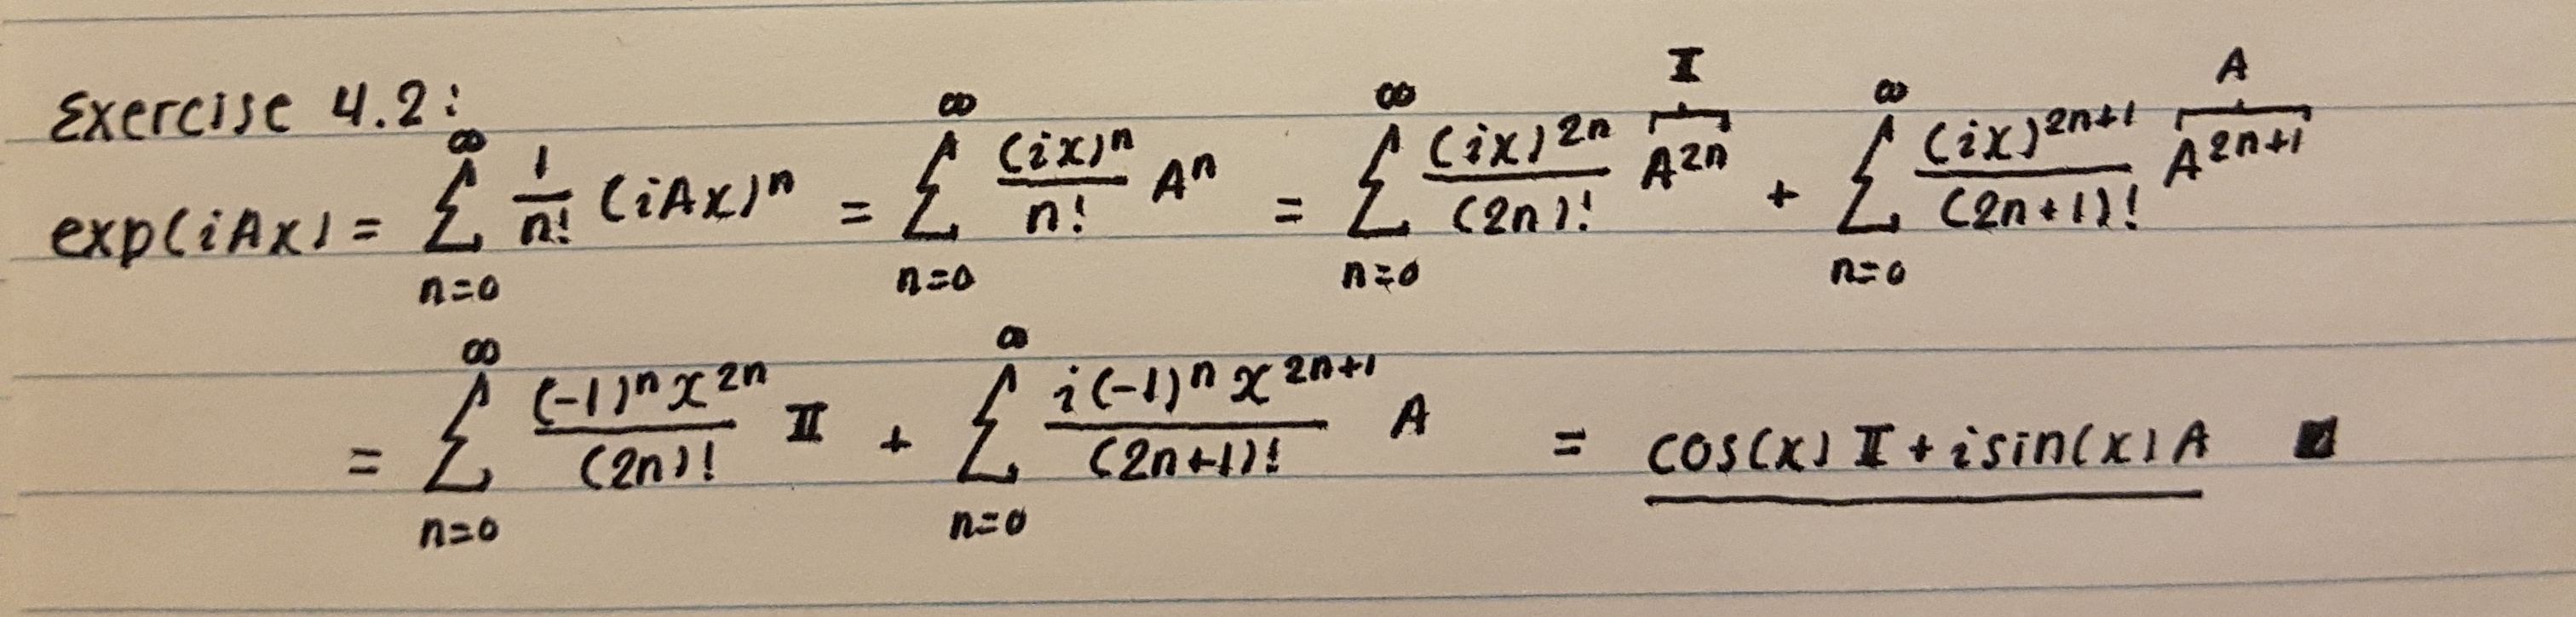 Exercise 4.2:
exp(iAx) = $\sum_{n=0}^{\infty} \frac{1}{n!} (iAx)^n = \sum_{n=0}^{\infty} \frac{(ix)^n}{n!} A^n = \sum_{n=0}^{\infty} \frac{(ix)^{2n}}{(2n)!} \overbrace{A^{2n}}^{\mathbb{I}} + \sum_{n=0}^{\infty} \frac{(ix)^{2n+1}}{(2n+1)!} \overbrace{A^{2n+1}}^{A}$
$= \sum_{n=0}^{\infty} \frac{(-1)^n x^{2n}}{(2n)!} \mathbb{I} + \sum_{n=0}^{\infty} \frac{i(-1)^n x^{2n+1}}{(2n+1)!} A = \underline{\cos(x) \mathbb{I} + i\sin(x) A}$ ■